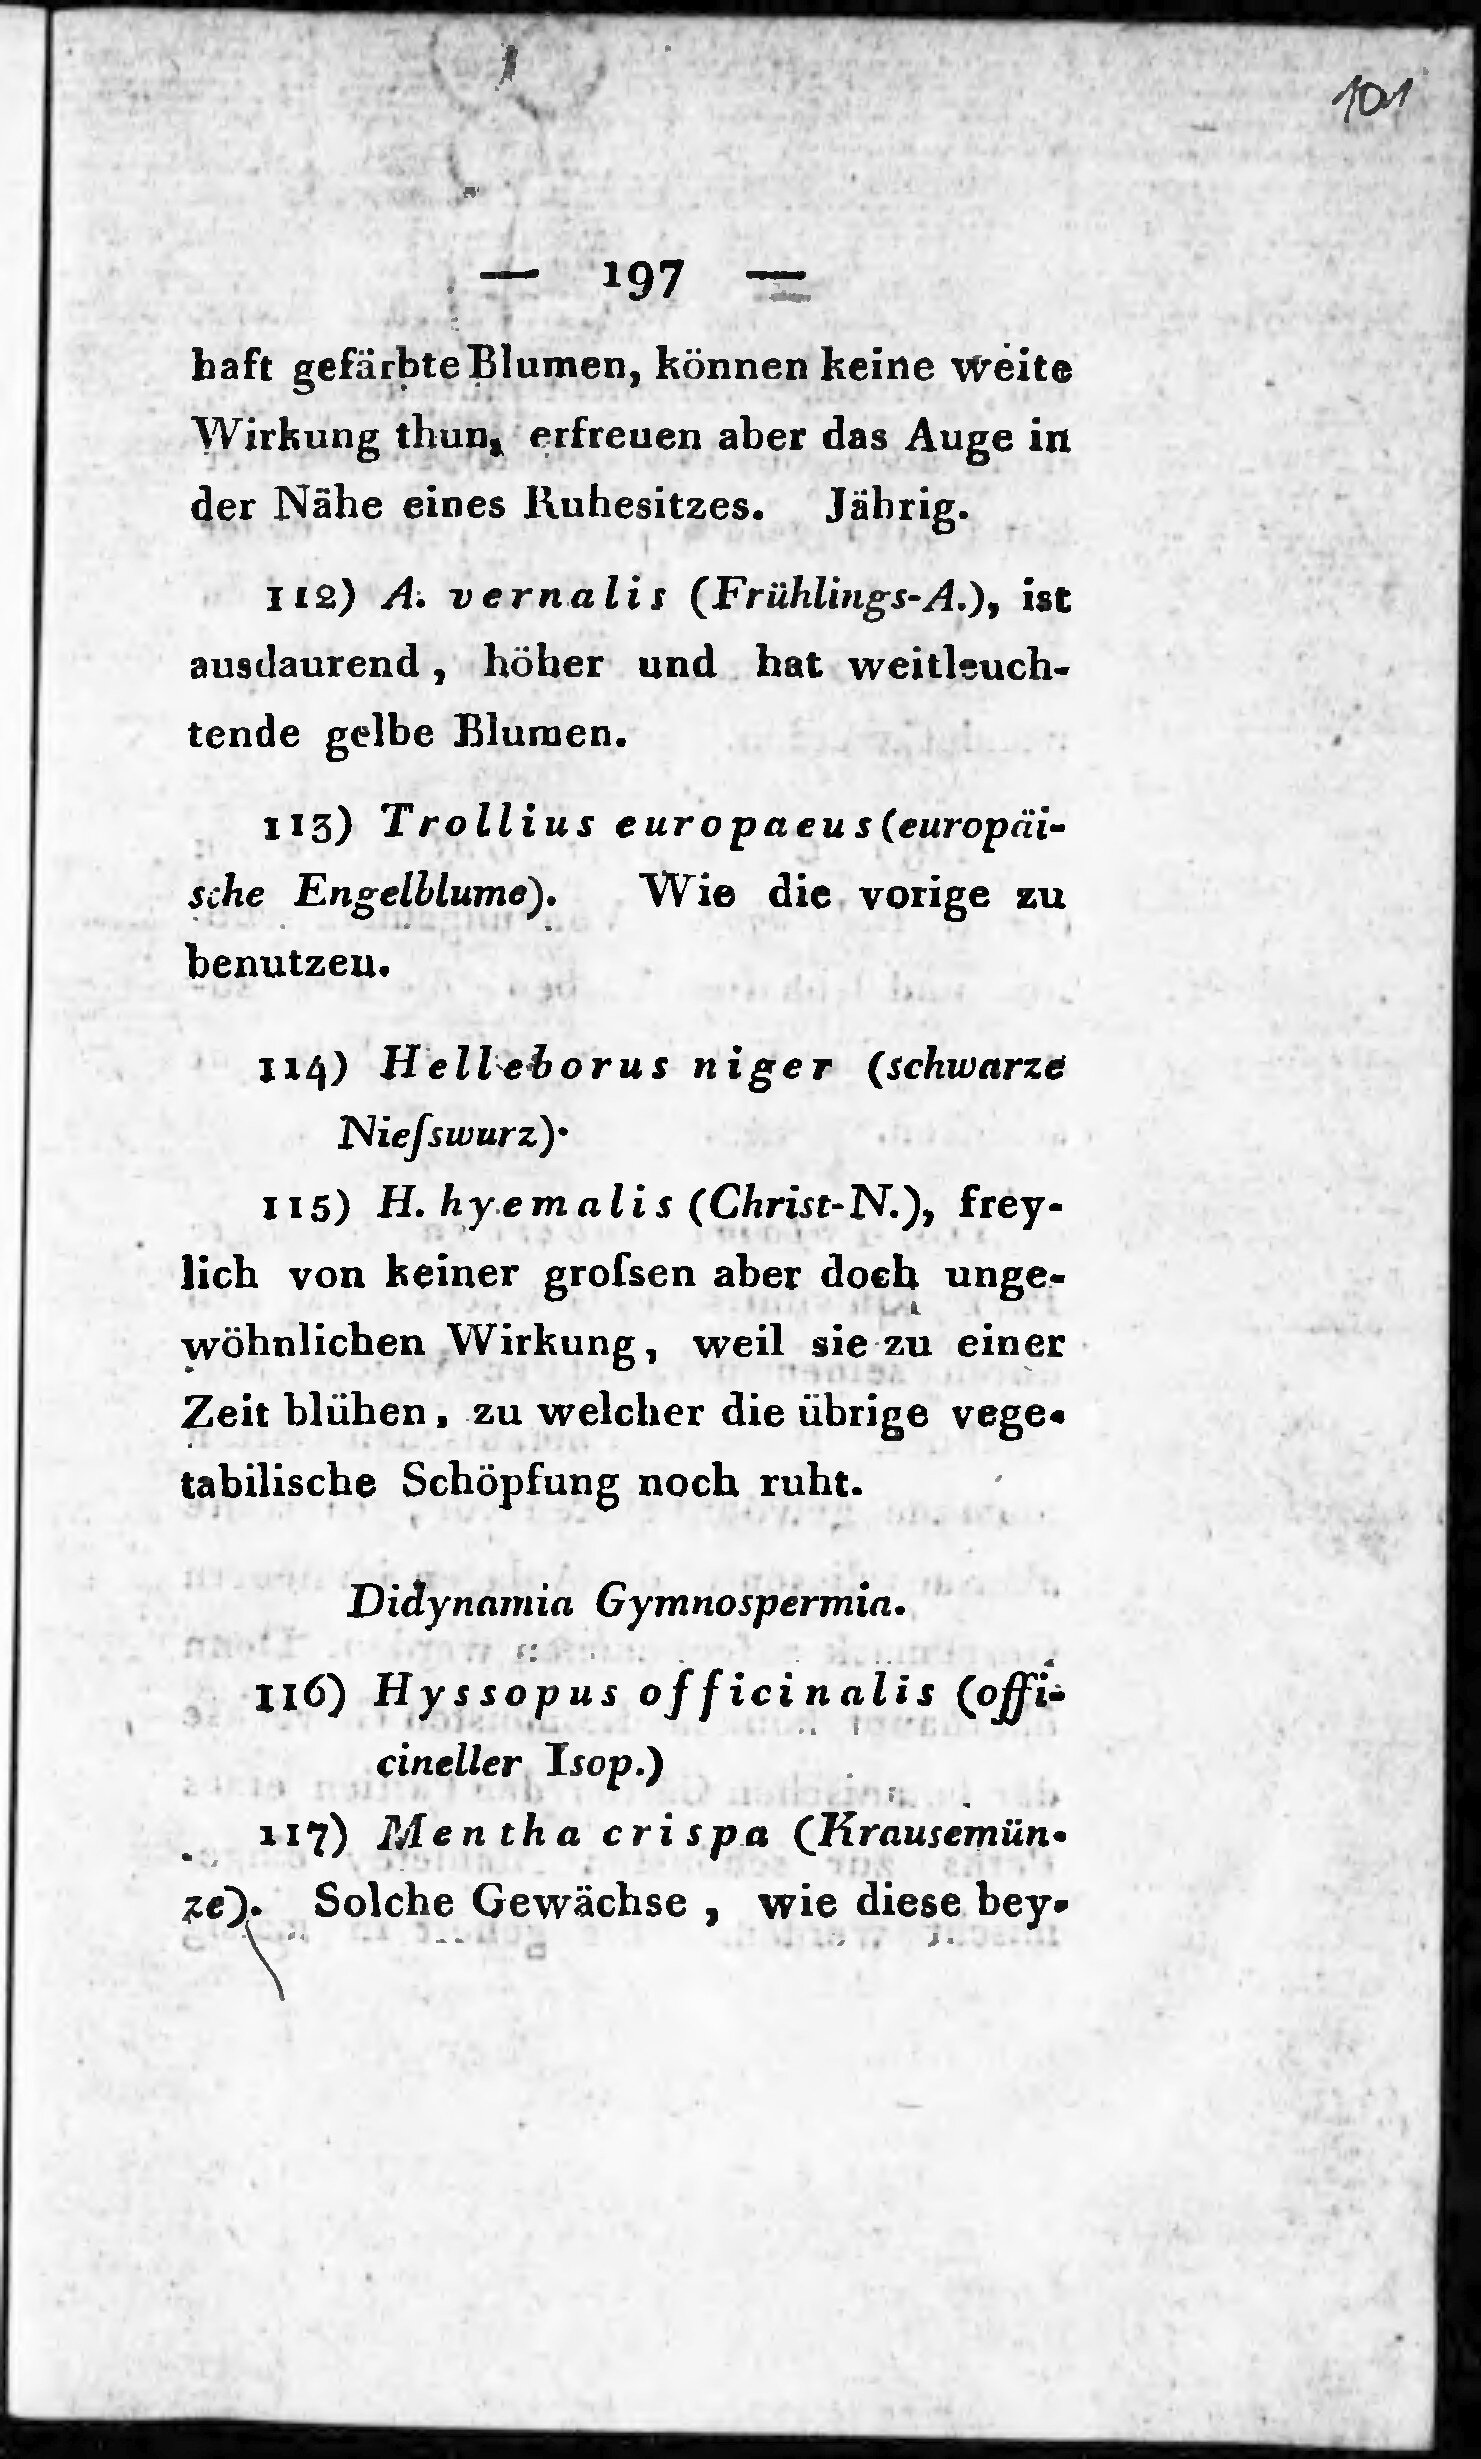 101
— 197 —
haft gefärbte Blumen, können keine weite
Wirkung thun, erfreuen aber das Auge in
der Nähe eines Ruhesitzes. Jährig.
112) A. vernalis (Frühlings-A.), ist
ausdaurend, höher und hat weitleuch-
tende gelbe Blumen.
113) Trollius europaeus (europäi-
sche Engelblume). Wie die vorige zu
benutzen.
114) Helleborus niger (schwarze
Nieſswurz).
115) H. hyemalis (Christ-N.), frey-
lich von keiner groſsen aber doch unge-
wöhnlichen Wirkung, weil sie zu einer
Zeit blühen, zu welcher die übrige vege-
tabilische Schöpfung noch ruht.
Didynamia Gymnospermia.
116) Hyssopus officinalis (offi-
cineller Isop.)
117) Mentha crispa (Krausemün-
ze). Solche Gewächse, wie diese bey-